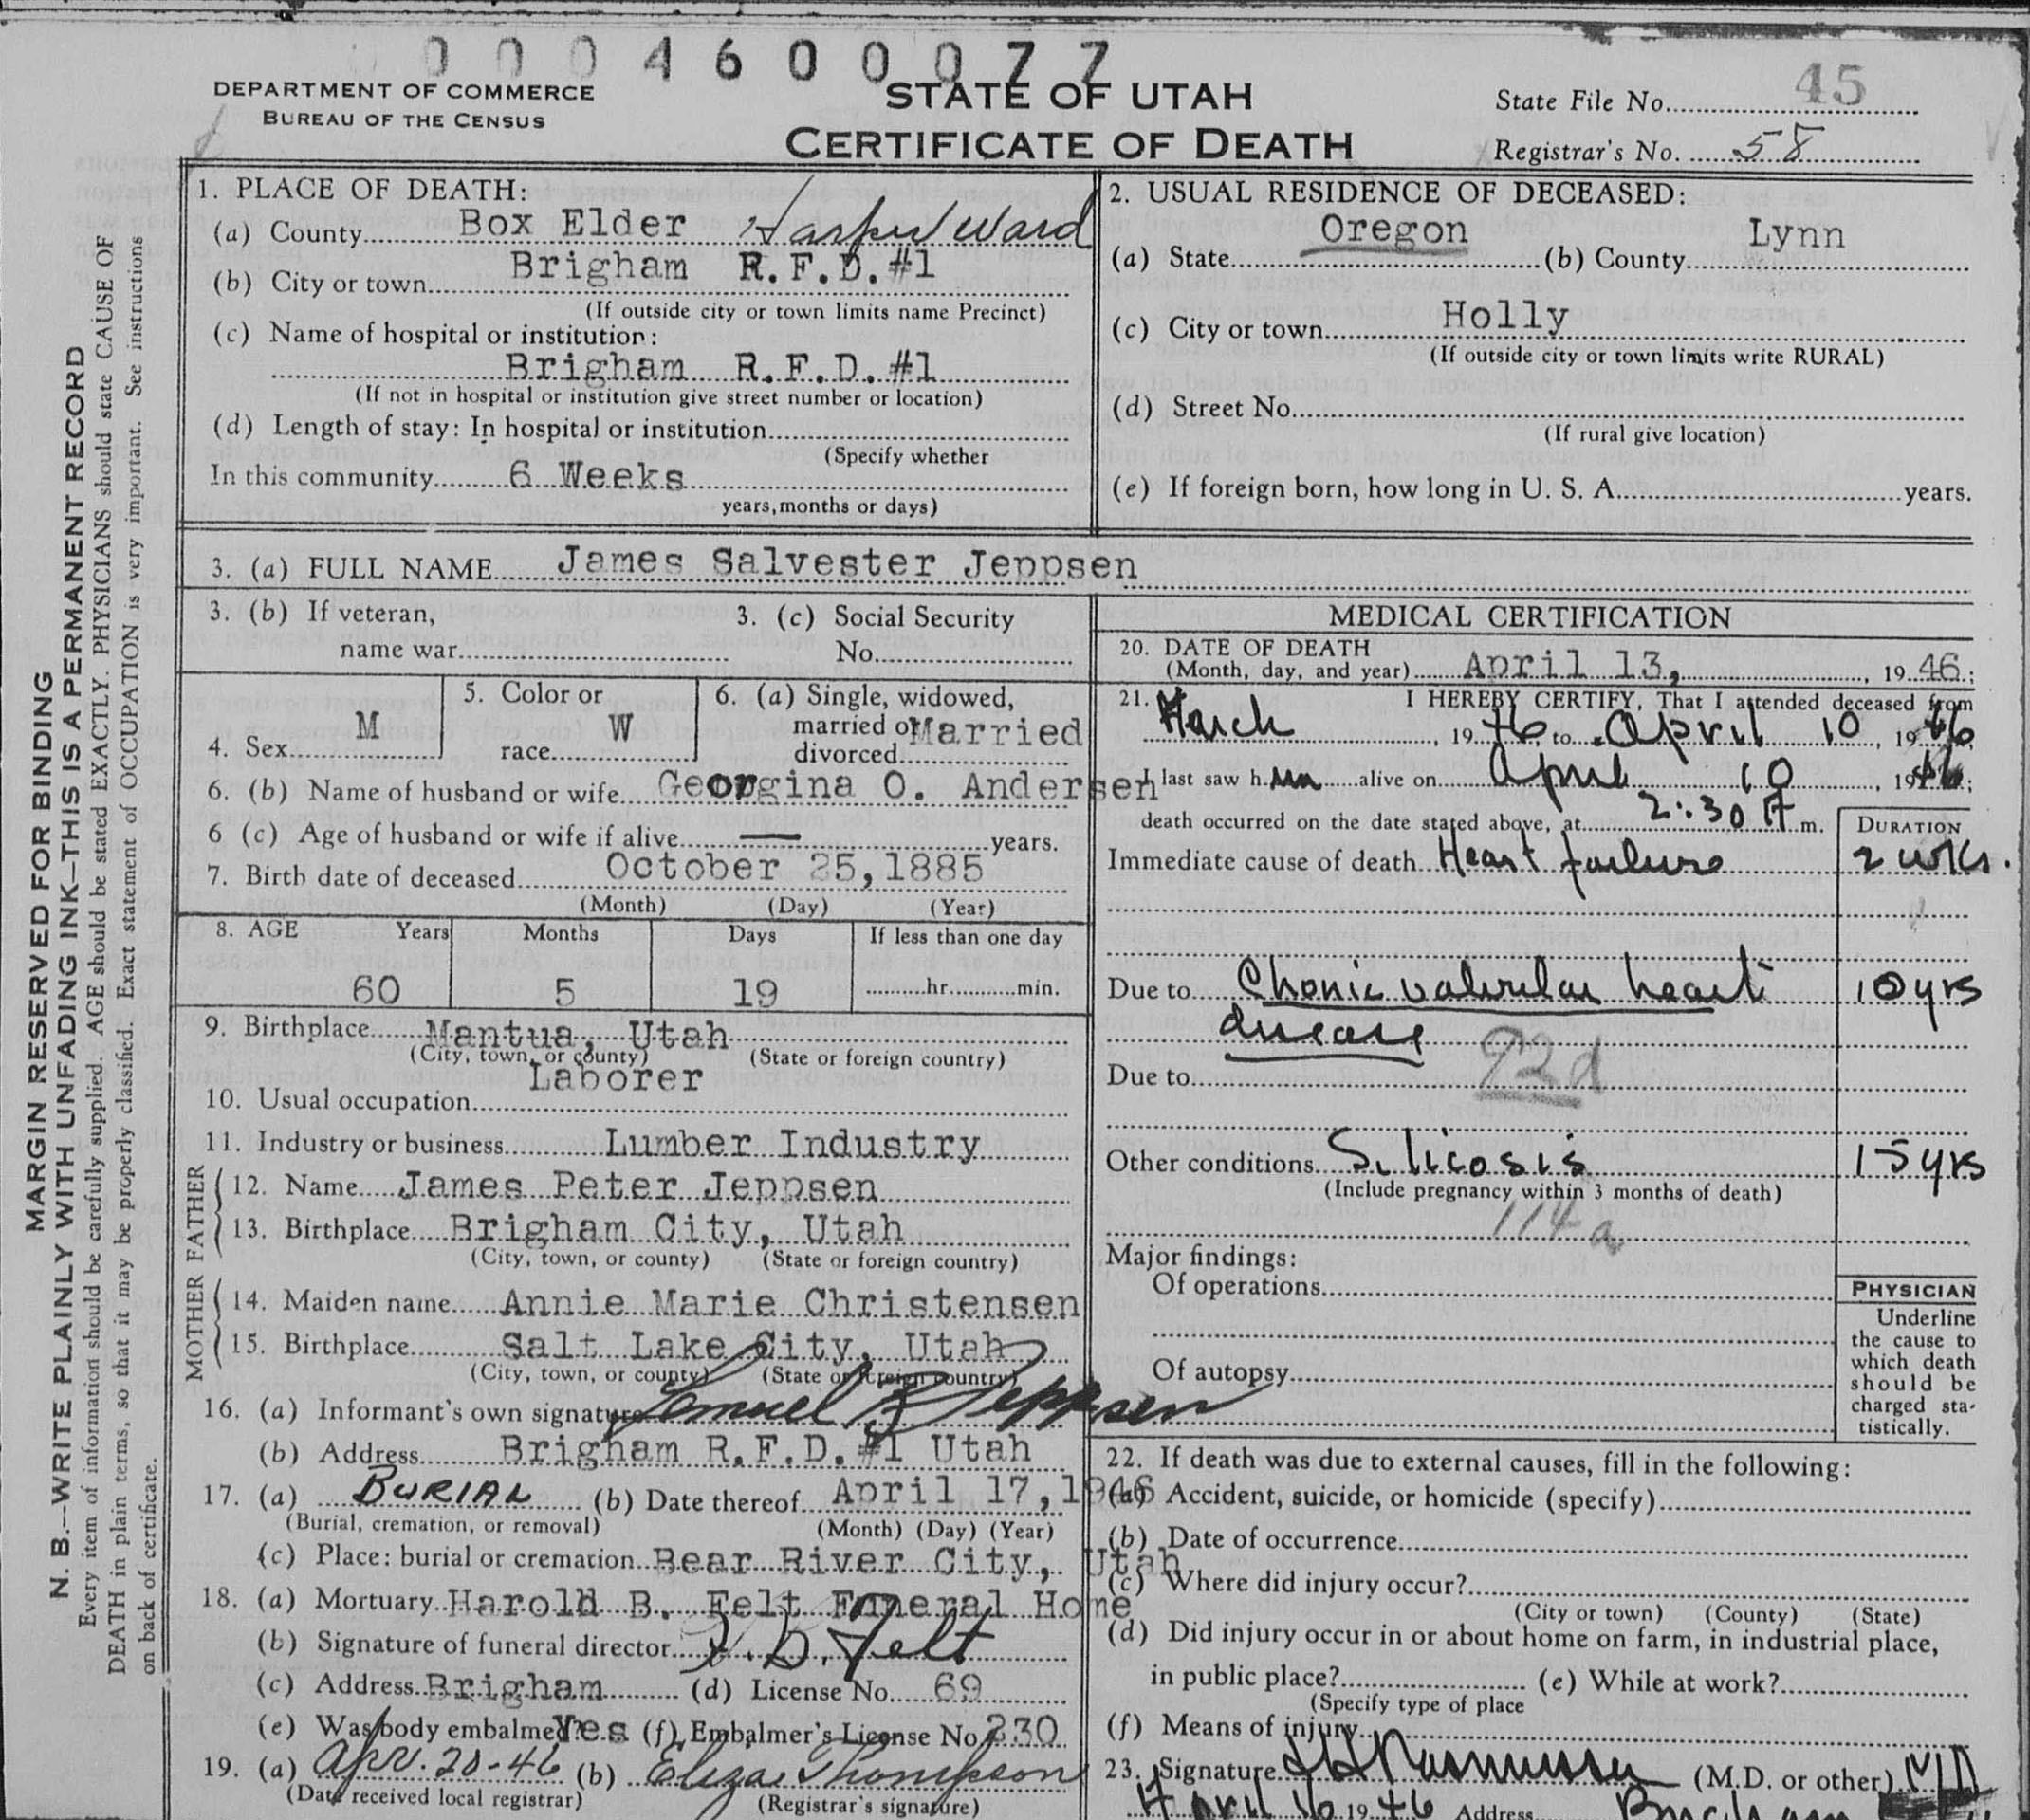 0004600077
DEPARTMENT OF COMMERCE
BUREAU OF THE CENSUS
STATE OF UTAH
CERTIFICATE OF DEATH
State File No. 45
Registrar's No. 58
MARGIN RESERVED FOR BINDING
N. B.—WRITE PLAINLY WITH UNFADING INK—THIS IS A PERMANENT RECORD
Every item of information should be carefully supplied. AGE should be stated EXACTLY. PHYSICIANS should state CAUSE OF
DEATH in plain terms, so that it may be properly classified. Exact statement of OCCUPATION is very important. See instructions
on back of certificate.
1. PLACE OF DEATH:
(a) County Box Elder Harper Ward
(b) City or town Brigham R.F.D.#1
(If outside city or town limits name Precinct)
(c) Name of hospital or institution:
Brigham R.F.D.#1
(If not in hospital or institution give street number or location)
(d) Length of stay: In hospital or institution
(Specify whether
In this community 6 Weeks
years, months or days)
2. USUAL RESIDENCE OF DECEASED:
(a) State Oregon (b) County Lynn
(c) City or town Holly
(If outside city or town limits write RURAL)
(d) Street No.
(If rural give location)
(e) If foreign born, how long in U. S. A. years.
3. (a) FULL NAME James Salvester Jeppsen
3. (b) If veteran,
name war
3. (c) Social Security
No.
4. Sex M
5. Color or
race W
6. (a) Single, widowed,
married or
divorced Married
6. (b) Name of husband or wife Georgina O. Andersen
6 (c) Age of husband or wife if alive — years.
7. Birth date of deceased October 25, 1885
(Month) (Day) (Year)
8. AGE Years Months Days If less than one day
60 5 19 hr. min.
9. Birthplace Mantua, Utah
(City, town, or county) (State or foreign country)
10. Usual occupation Laborer
11. Industry or business Lumber Industry
FATHER
12. Name James Peter Jeppsen
13. Birthplace Brigham City, Utah
(City, town, or county) (State or foreign country)
MOTHER
14. Maiden name Annie Marie Christensen
15. Birthplace Salt Lake City, Utah
(City, town, or county) (State or foreign country)
16. (a) Informant's own signature Jeppsen
(b) Address Brigham R.F.D.#1 Utah
17. (a) BURIAL (b) Date thereof April 17, 1946
(Burial, cremation, or removal) (Month) (Day) (Year)
(c) Place: burial or cremation Bear River City, Utah
18. (a) Mortuary Harold B. Felt Funeral Home
(b) Signature of funeral director H. B. Felt
(c) Address Brigham (d) License No. 69
(e) Was body embalmed? Yes (f) Embalmer's License No. 230
19. (a) Apr. 20-46 (b) Eliza Thompson
(Date received local registrar) (Registrar's signature)
MEDICAL CERTIFICATION
20. DATE OF DEATH
(Month, day, and year) April 13, 1946;
21. I HEREBY CERTIFY, That I attended deceased from
March, 1946, to April 10, 1946,
I last saw him alive on April 10, 1946;
death occurred on the date stated above, at 2:30 A m.
DURATION
Immediate cause of death Heart failure 2 wks.
Due to Chonic valvular heart 10 yrs
disease
92d
Due to
Other conditions Silicosis 15 yrs
(Include pregnancy within 3 months of death)
114a
Major findings:
Of operations
Of autopsy
PHYSICIAN
Underline
the cause to
which death
should be
charged sta-
tistically.
22. If death was due to external causes, fill in the following:
(a) Accident, suicide, or homicide (specify)
(b) Date of occurrence
(c) Where did injury occur?
(City or town) (County) (State)
(d) Did injury occur in or about home on farm, in industrial place,
in public place? (e) While at work?
(Specify type of place
(f) Means of injury
23. Signature Rasmussen (M.D. or other) MD
April 16 1946 Address Brigham